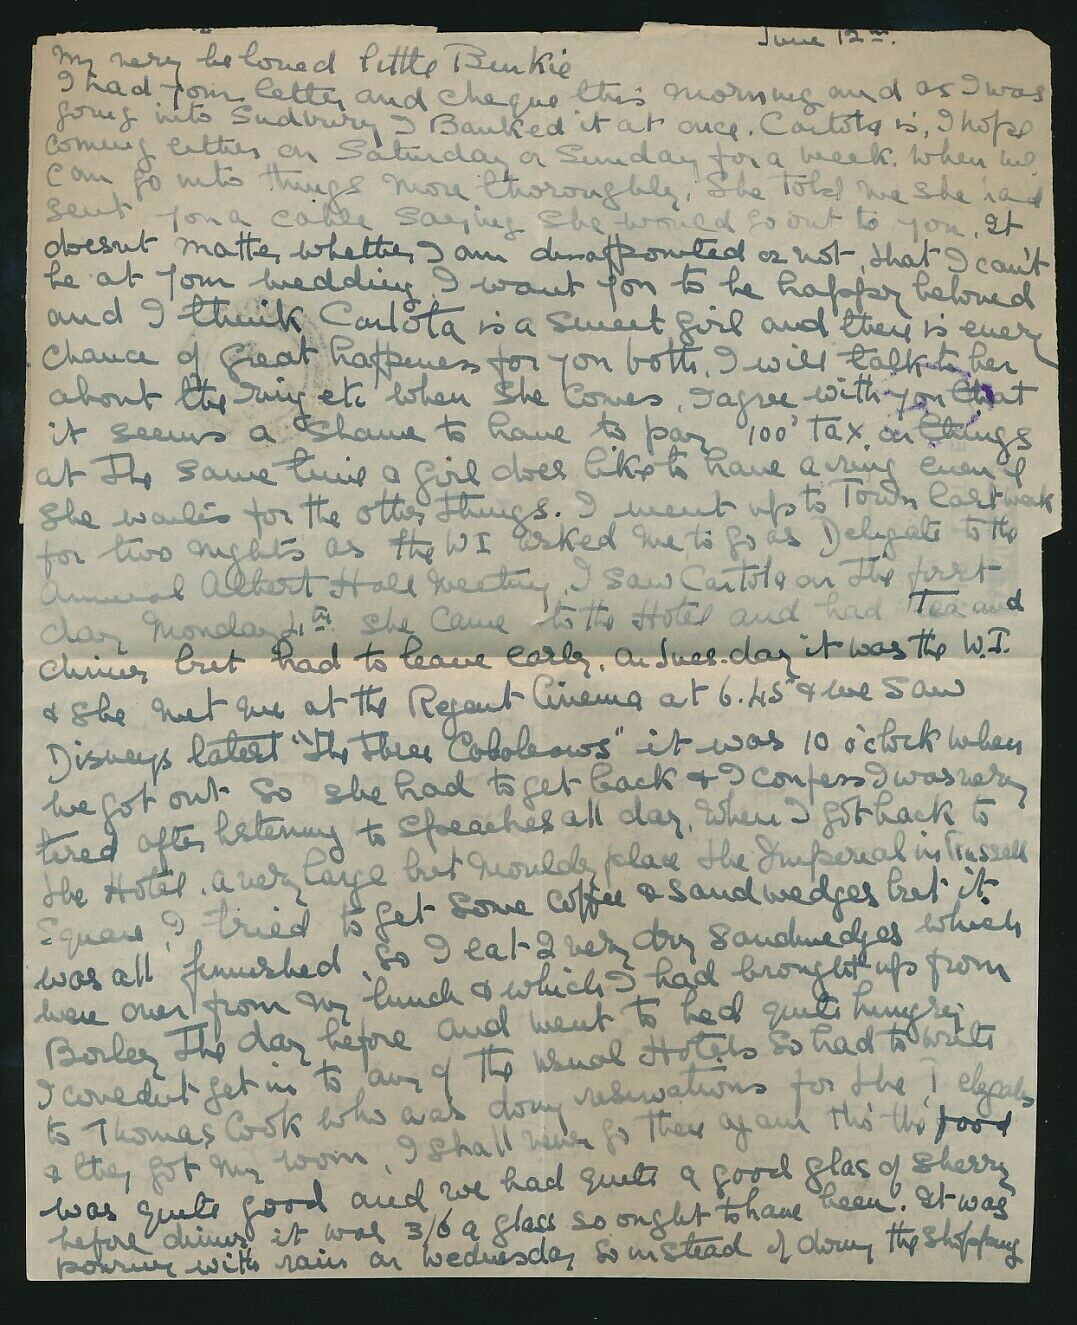 June 12th.
My very beloved little Bunkie
I had your letter and cheque this morning and as I was
going into Sudbury I Banked it at once. Carlota is, I hope
coming either on Saturday or Sunday for a week. When we
can go into things more thoroughly, She told me she had
sent you a cable saying she would go out to you. It
doesnt matter whether I am disappointed or not, that I can't
be at your wedding, I want you to be happy beloved
and I think Carlota is a sweet girl and there is every
chance of great happeness for you both. I will talk to her
about the ring etc when she comes, I agree with you that
it seems a shame to have to pay 100% Tax on things
at the same time a girl does like to have a ring even if
she waits for the other things. I went up to Town last week
for two nights as the W I asked me to go as Delegate to the
Annual Albert Hall Meeting, I saw Carlota on the first
day Monday 4th she came to the Hotel and had Tea and
dinner but had to leave early, on Tues-day it was the W.I.
& she met me at the Regent Cinema at 6.45 & we saw
Disneys latest "The Three Cabaleros" it was 10 o'clock when
we got out so she had to get back & I confess I was very
tired after listening to speaches all day. When I got back to
the Hotel, a very large but mouldy place the Imperial in Russell
Square, I tried to get some coffee & sandwedges but it
was all finnished, So I eat 2 very dry sandwedges which
were over from my lunch & which I had brought up from
Borley the day before and went to bed quite hungry,
I couldnt get in to any of the usual Hotels so had to write
to Thomas Cook who was doing reservations for the Delegates
& they got my room, I shall never go there again tho' the food
was quite good and we had quite a good glas of sherry
before dinner it was 3/6 a glass so ought to have been. It was
pouring with rain on Wednesday so instead of doing the shopping